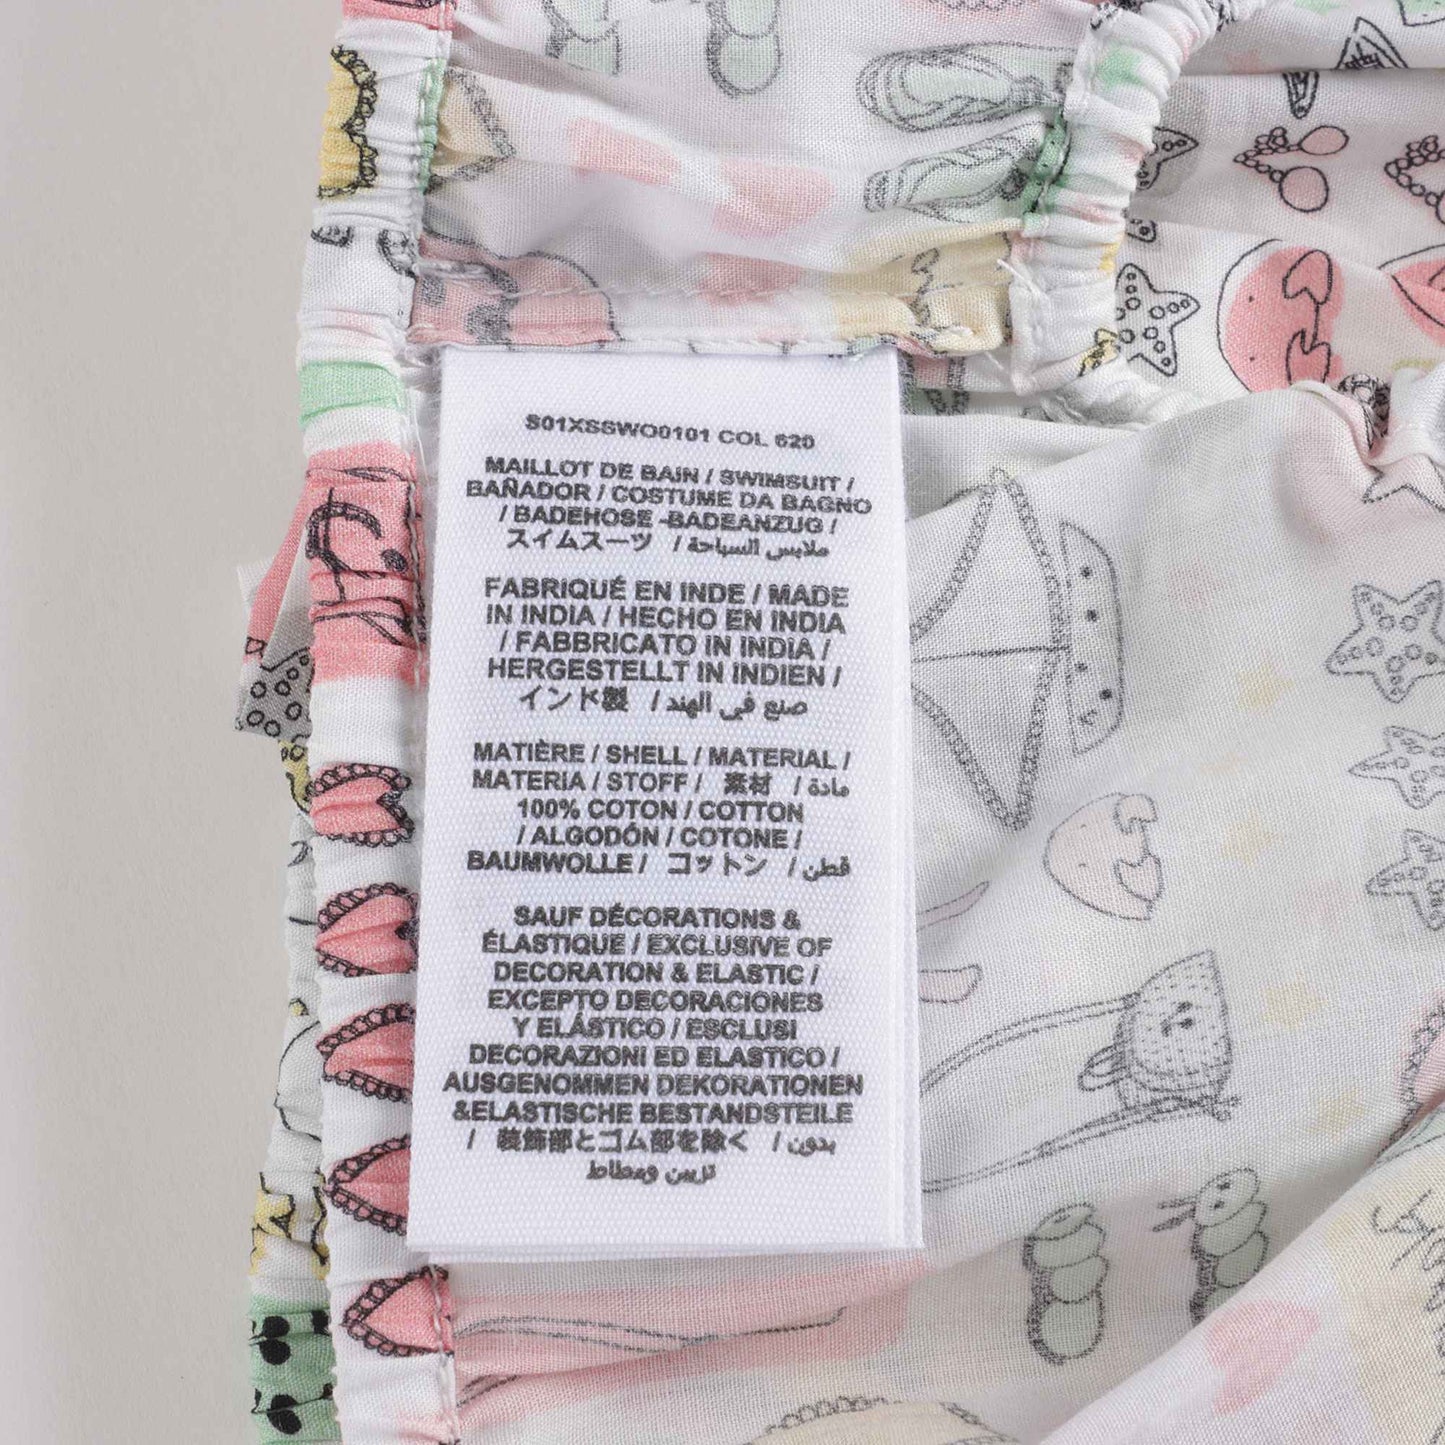 S01XSSWO0101 COL 620
MAILLOT DE BAIN / SWIMSUIT /
BAÑADOR / COSTUME DA BAGNO
/ BADEHOSE -BADEANZUG /
スイムスーツ / ملابس السباحة
FABRIQUÉ EN INDE / MADE
IN INDIA / HECHO EN INDIA
/ FABBRICATO IN INDIA /
HERGESTELLT IN INDIEN /
インド製 / صنع في الهند
MATIÈRE / SHELL / MATERIAL /
MATERIA / STOFF / 素材 / مادة /
100% COTON / COTTON
/ ALGODÓN / COTONE /
BAUMWOLLE / コットン / قطن
SAUF DÉCORATIONS &
ÉLASTIQUE / EXCLUSIVE OF
DECORATION & ELASTIC /
EXCEPTO DECORACIONES
Y ELÁSTICO / ESCLUSI
DECORAZIONI ED ELASTICO /
AUSGENOMMEN DEKORATIONEN
&ELASTISCHE BESTANDSTEILE
/ 装飾部とゴム部を除く / بدون
تزيين ومطاط